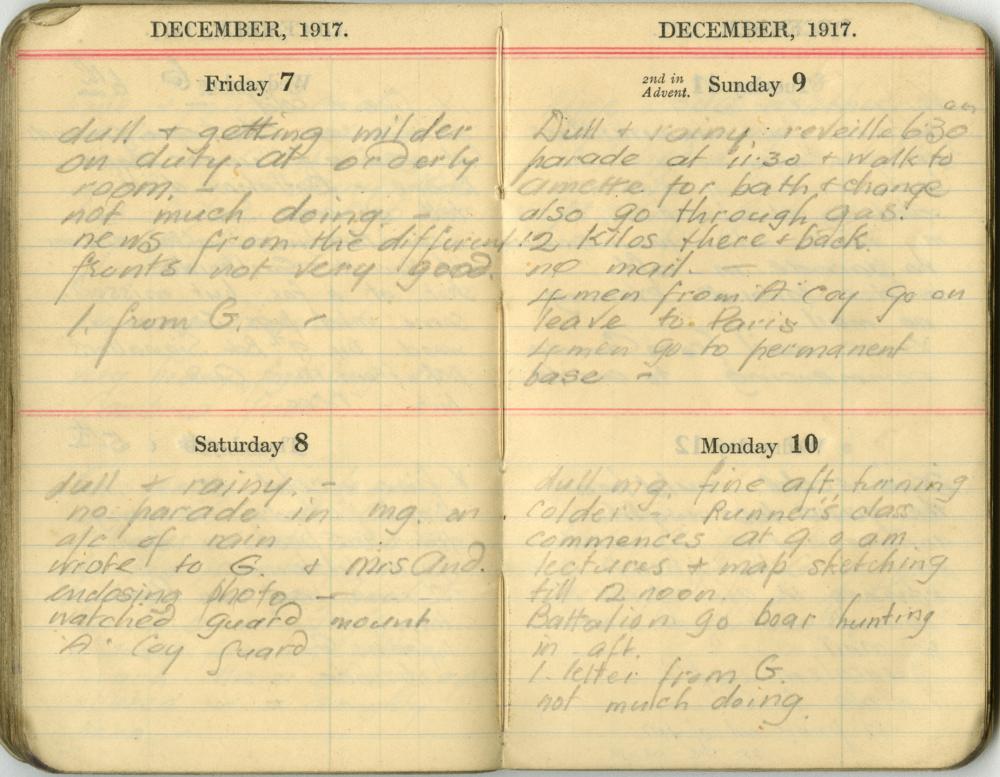 DECEMBER, 1917.
Friday 7
dull & getting milder
on duty at orderly
room. -
not much doing. -
news from the different
fronts not very good.
1. from G. -
Saturday 8
dull & rainy. -
no parade in mg. on
a/c of rain
wrote to G. & Mrs And.
enclosing photo -
watched guard mount
"A" Coy guard
DECEMBER, 1917.
2nd in Advent. Sunday 9
am
Dull & rainy. reveille 6.30
parade at 11.30 & walk to
for bath & change
also go through gas.
12 kilos there & back.
no mail. -
4 men from "A" Coy go on
leave to Paris
4 men go to permanent
base -
Monday 10
dull mg. fine aft. turning
colder - Runner's class
commences at 9.0 am
lectures & map sketching
till 12 noon.
Battalion go boar hunting
in aft.
1. letter from G.
not much doing.